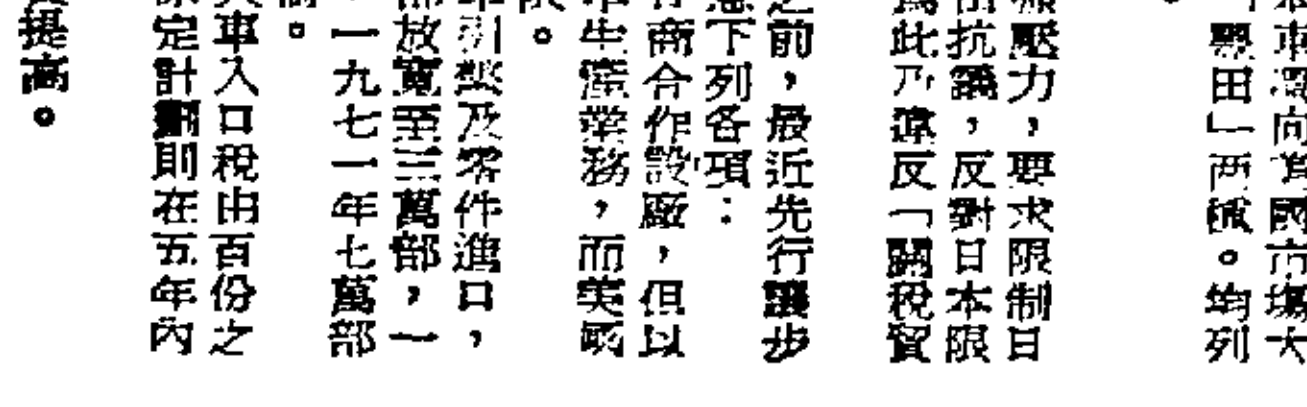 車湧向美國市場大
田」兩種。均列
壓力，要求限制日
抗議，反對日本限
為此乃違反「關稅貿
之前，最近先行讓步
下列各項：
商合作設廠，但以
生產業務，而美國
。
引擎及零件進口，
部放寬至三萬部，一
一九七一年七萬部
。
車入口稅由百份之
定計劃則在五年內
提高。